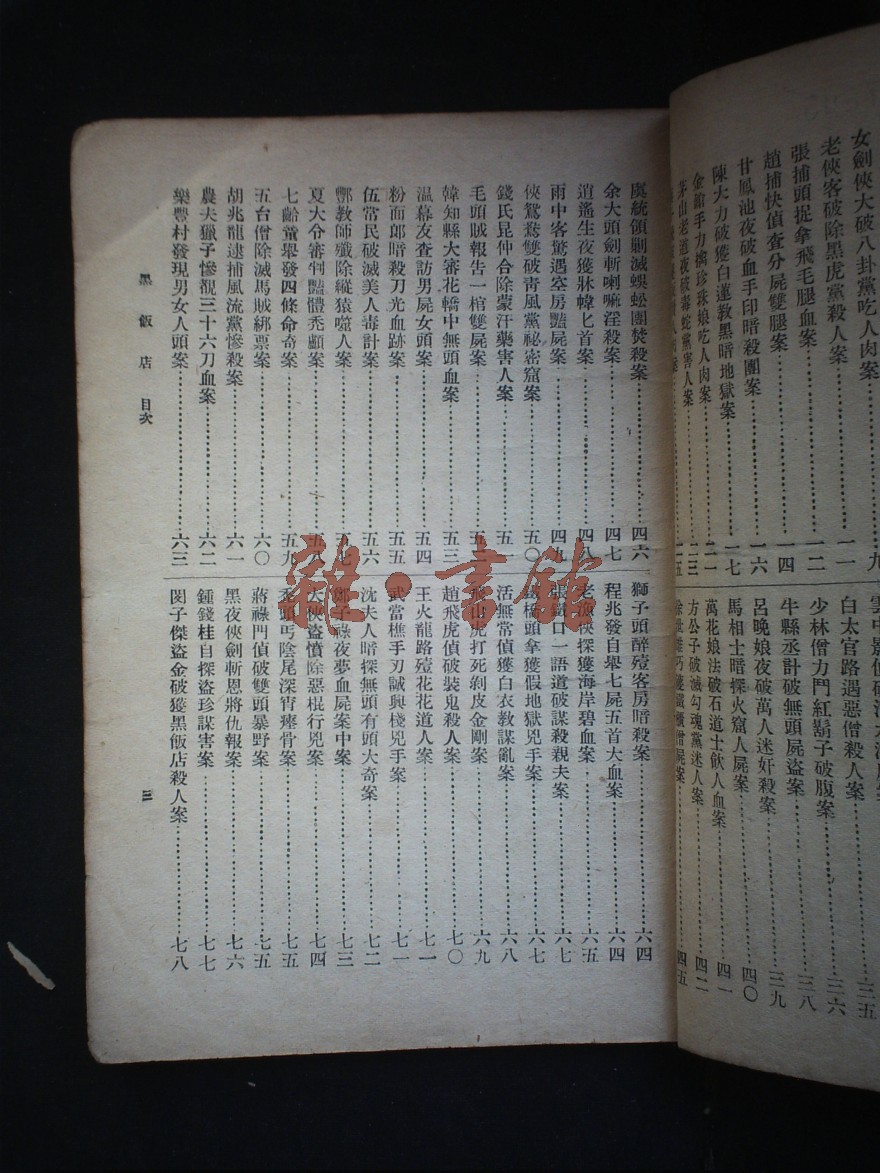 女劍俠大破八卦黨吃人肉案……九
老俠客破除黑虎黨殺人案……一一
張捕頭捉拿飛毛腿血案……一二
趙捕快偵查分屍雙腿案……一四
甘鳳池夜破血手印暗殺團案……一六
陳大力破獲白蓮教黑暗地獄案……一七
金鎗手力擒珍珠娘吃人肉案……二一
茅山老道夜破毒蛇黨害人案……二三
二五
雲中影偵破
白太官路遇惡僧殺人案……三五
少林僧力鬥紅鬍子破腹案……三六
牛縣丞計破無頭屍盜案……三八
呂晚娘夜破萬人迷奸殺案……三九
馬相士暗探火窟人屍案……四〇
萬花娘法破石道士飲人血案……四一
方公子破滅勾魂黨迷人案……四二
僧屍案……四五
虞統領剿滅蜈蚣團焚殺案……四六
余大頭劍斬喇嘛淫殺案……四七
逍遙生夜獲牀幃匕首案……四八
雨中客驚遇空房豔屍案……四九
俠鴛鴦雙破青風黨祕密窟案……五〇
錢氏昆仲合除蒙汗藥害人案……五一
毛頭賊報告一棺雙屍案……五三
韓知縣大審花轎中無頭血案……五三
溫幕友查訪男屍女頭案……五四
粉面郎暗殺刀光血跡案……五五
伍常民破滅美人毒計案……五六
酆教師殲除縱猿噬人案……五七
夏大令審判豔體禿顱案……五八
七齡童舉發四條命奇案……五九
五台僧除滅馬賊綁票案……六〇
胡兆龍逮捕風流黨慘殺案……六一
農夫獵子慘覩三十六刀血案……六二
樂豐村發現男女人頭案……六三
獅子頭醉殪客房暗殺案……六四
程兆發自舉七屍五首大血案……六四
老漁俠探獲海岸碧血案……六五
張鐵口一語道破謀殺親夫案……六七
鐵橋頭拿獲假地獄兇手案……六七
活無常偵獲白衣教謀亂案……六八
飛山虎打死剝皮金剛案……六九
趙飛虎偵破裝鬼殺人案……七〇
王火龍路殪花花道人案……七一
武當樵手刃誠興棧兇手案……七一
沈夫人暗探無頭有頭大奇案……七二
鄭子祿夜夢血屍案中案……七三
大俠盜憤除惡棍行兇案……七四
禿頭丐陰尾深宵瘞骨案……七五
蔣祿門偵破雙頭暴野案……七五
黑夜俠劍斬恩將仇報案……七六
鍾錢桂自探盜珍謀害案……七七
閔子傑盜金破獲黑飯店殺人案……七八
黑飯店 目次
三
雜·書館